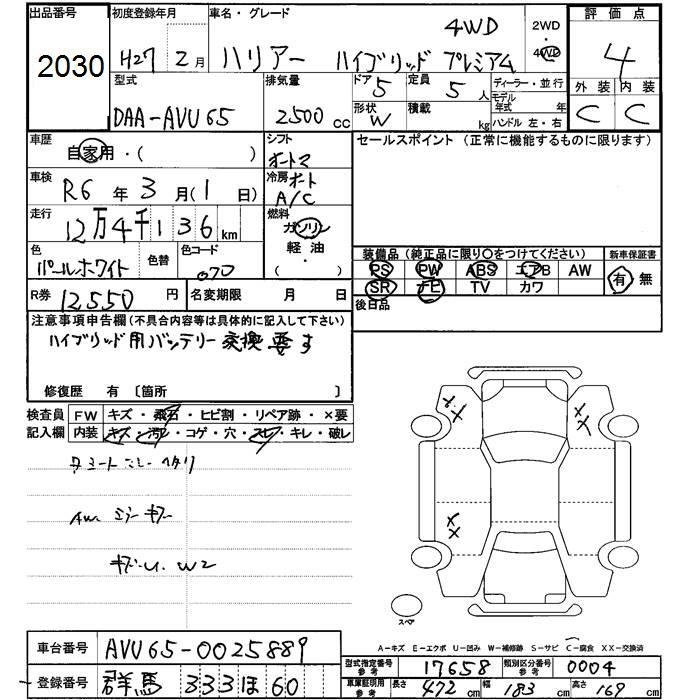 出品番号 初度登録年月 車名・グレード 2WD 評価点
2030 H27 2月 ハリアー ハイブリッド プレミアム 4WD ・4WD 4
型式 排気量 ドア 5 定員 5人 ディーラー・並行 外装 内装
DAA-AVU65 2500cc 形状 W 積載 kg モデル年式 年 C C
ハンドル 左・右
車歴 自家用・( ) シフト オートマ セールスポイント (正常に機能するものに限ります)
車検 R6年3月(1日) 冷房 オート A/C
走行 12万4千136km 燃料 ガソリン
軽油
( )
色 パールホワイト 色替 色コード 070 装備品 (純正品に限り○をつけてください) 新車保証書
PS PW ABS エアB AW 有 無
SR ナビ TV カワ
R券 12550円 名変期限 月 日 後日品
注意事項申告欄(不具合内容等は具体的に記入して下さい)
ハイブリッド用バッテリー 交換要す
修復歴 有 〔箇所 〕
検査員 FW キズ・飛石・ヒビ割・リペア跡・×要
記入欄 内装 キズ・汚レ・コゲ・穴・スレ・キレ・破レ
AW ミラー キズ
キズ・U. W2
XX
XX
スペア
A-キズ E-エクボ U-凹み W-補修跡 S-サビ C-腐食 XX-交換済
車台番号 AVU65-0025889
型式指定番号 参考 17658 類別区分番号 参考 0004
登録番号 群馬 333 ほ 60
車庫証明用 参考 長さ 472cm 幅 183cm 高さ 169cm